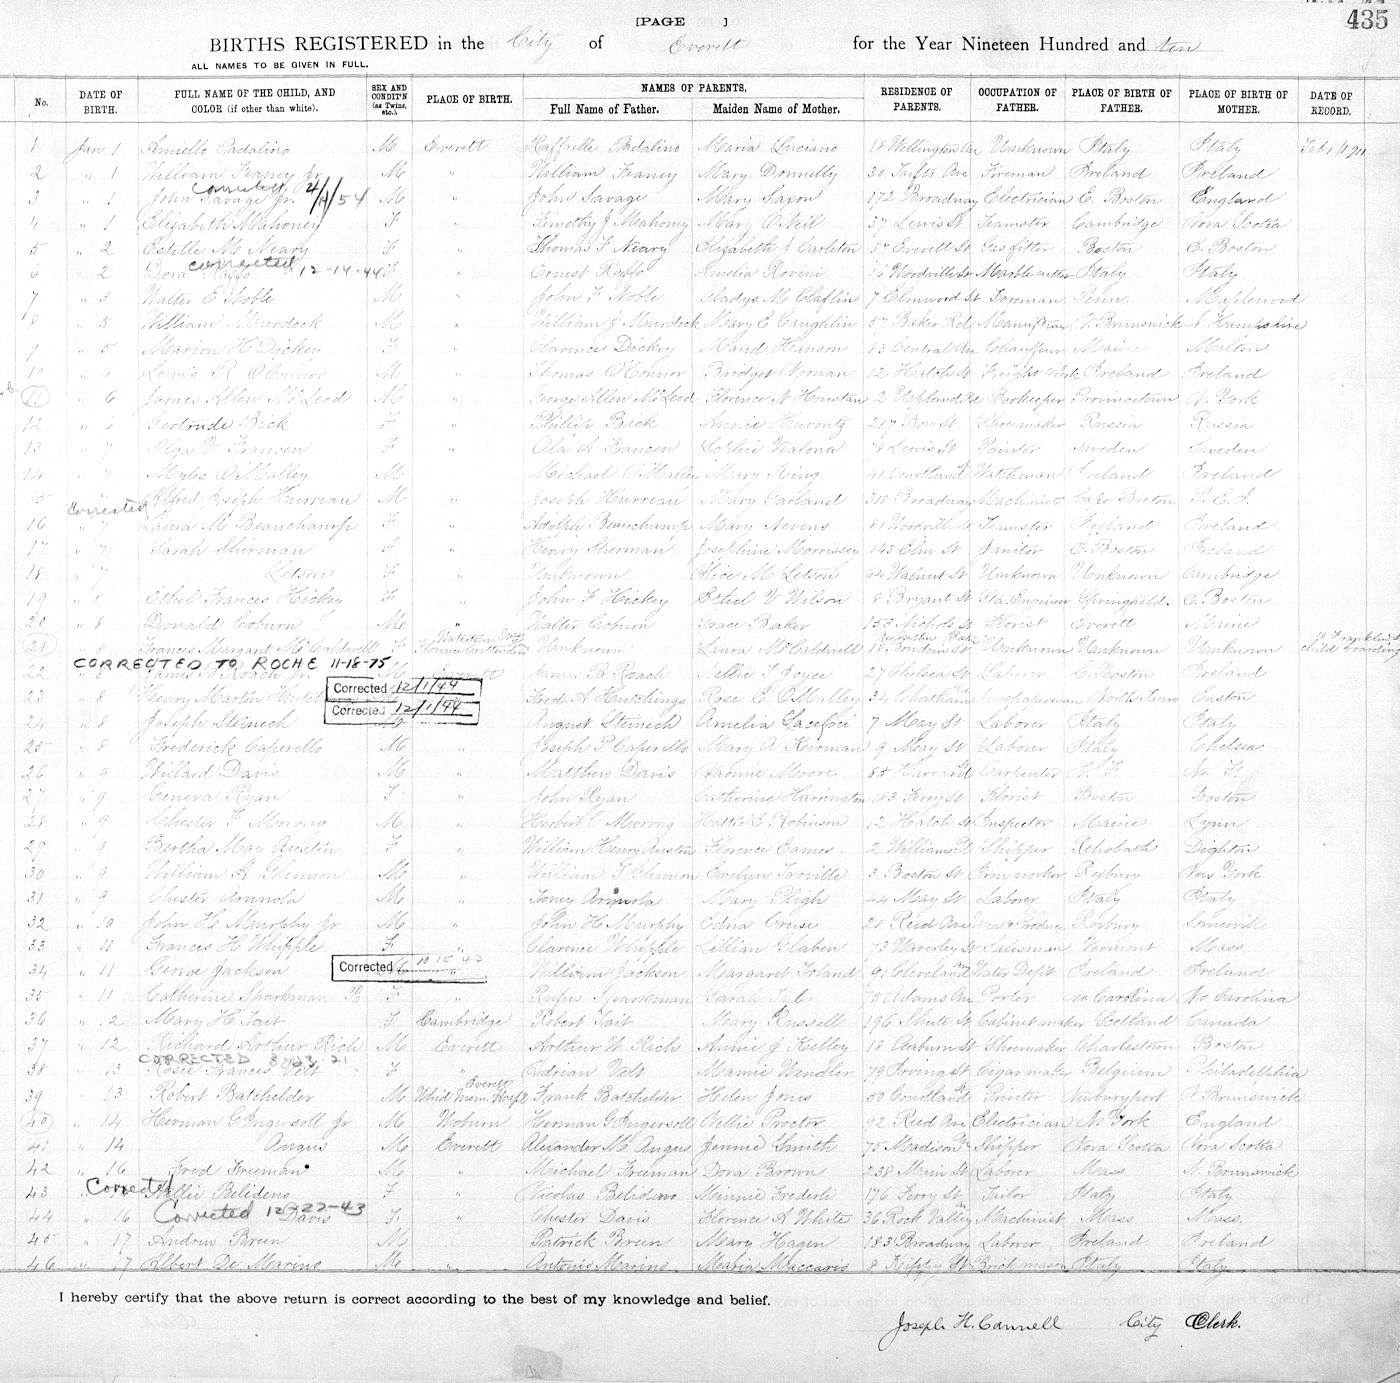 [PAGE ]
435
BIRTHS REGISTERED in the City of Everett for the Year Nineteen Hundred and ten
ALL NAMES TO BE GIVEN IN FULL.
No. DATE OF BIRTH. FULL NAME OF THE CHILD, AND COLOR (if other than white). SEX AND CONDIT'N (as Twins, etc.). PLACE OF BIRTH. NAMES OF PARENTS. Full Name of Father. Maiden Name of Mother. RESIDENCE OF PARENTS. OCCUPATION OF FATHER. PLACE OF BIRTH OF FATHER. PLACE OF BIRTH OF MOTHER. DATE OF RECORD.
1 Jan. 1 Padalino M Everett Raffaelle Padalino Maria Luciano 18 Wellington Av Unknown Italy Italy
2 " 1 William Feaney Jr M " William Feaney Mary Donnelly 30 Tufts Ave Fireman Ireland Ireland
corrected 2/11/54
3 " 1 John Savage Jr. M " John Savage Mary Saxon 172 Broadway Electrician E. Boston England
4 " 1 Elizabeth Mahoney F " Timothy J Mahoney Mary O'Neil 37 Lewis St Teamster Cambridge Nova Scotia
5 " 2 Estelle M. Neary F " Thomas F Neary Elizabeth J Carleton 57 Everett St Gasfitter Boston E. Boston
corrected 12-14-44
6 " 2 Dora F " Ernest Amelia Rovini Woodville St Marble cutter Italy Italy
7 " 3 Walter E Noble M " John F Noble Gladys M Claflin 7 Elmwood St Foreman Penn. Maplewood
8 " 5 William Murdock M " William J Murdock Mary E Coughlin 57 Baker Rd N. Brunswick N. Hampshire
9 " 5 Marion H Dickey F " Clarence Dickey Maud Hanson 83 Central Av Chauffeur Maine Milton
10 " 6 Lewis R. O'Connor M " Thomas O'Connor Bridget Noonan 12 Hatch St Freight Clerk Ireland Ireland
11 " 6 James Allen McLeod M " George Allen McLeod Florence N Houstan 2 Upland Rd Bookkeeper Provincetown N. York
12 " 6 Gertrude Bick F " Phillip Bick Annie 217 Bow St Shoemaker Russia Russia
13 " 7 Olga V Fransen F " Ola A Fransen Sophie 78 Lewis St Painter Sweden Sweden
14 " 7 Myles O'Malley M " Michael O'Malley Mary King 41 Courtland St Watchman Ireland Ireland
15 Alfred Joseph Hurreau M " Joseph Hurreau Mary Garland 318 Broadway Machinist P. E. I.
corrected
16 " 7 Laura M Beauchamp F " Adolph Beauchamp Mary Nevens 81 Woodville St Teamster Ireland
17 " 7 Sarah Sherman F " Henry Sherman Josephine Morrissey 143 Elm St Janitor E. Boston Ireland
18 " 7 Letson F " Unknown Alice M Letson 64 Walnut St Unknown Unknown Cambridge
19 " 8 Ethel Frances Hickey F " John F Hickey Ethel V Wilson 8 Bryant St Sta. Engineer Springfield. E. Boston
20 " 8 Donald Coburn M " Walter Coburn Grace Baker 153 Nichols St Florist Everett Maine
21 " 8 Frances Margaret McCaldwell F Unknown Laura McCaldwell 18 Bowdoin St Unknown Unknown Unknown
CORRECTED TO ROCHE 11-18-75
22 " 8 James M Roach Jr. M Everett James B Roach Nellie F Joyce Chelsea St Laborer E. Boston Ireland
Corrected 12/1/44
23 " 8 Henry Martin Fred A Hutchings Rose E O'Malley Easton
Corrected 12/1/44
24 " 8 Joseph Steinech August Steinech Amelia 7 May St Laborer Italy Italy
25 " 8 Frederick Caperello M " Joseph P Caperello Mary A Keirman 9 May St Laborer Italy Chelsea
26 " 9 Willard Davis M " Matthew Davis Naomie Moore 85 Carpenter
27 " 9 Geneva Ryan F " John Ryan Catherine Harrington 183 Ferry St Florist Boston Boston
28 " 9 Chester F Murong M " Herbert C Murong Hattie E Robinson 12 Hatch St Inspector Maine Lynn
29 " 9 Bertha May Auston F " William Henry Auston Florence Eames 2 Williams Pl Shipper Rehoboth Dighton
30 " 9 William A Glennon M " William F Glennon Evelyn Troville 3 Boston St Ironworker Roxbury New York
31 " 9 Chester Arinola M " Toney Arinola Mary Pligh 44 May St Laborer Italy Italy
32 " 10 John H. Murphy Jr M " John H Murphy Edna Cruse 21 Reid Ave Roxbury Somerville
33 " 11 Frances H Whipple F " Clarence Whipple Lillian Glaben 73 Waverley St Salesman Vermont Mass
Corrected 10 15 43
34 " 11 George Jackson M " William Jackson Margaret Toland 91 Cleveland Water Dep't Ireland Ireland
35 " 11 Catherine Sparkman B F " Rufus Sparkman Sarah 75 Adams Ave Porter No Carolina No Carolina
36 " 12 Mary H. Tait F Cambridge Robert Tait Mary Russell 196 Shute St Cabinet maker Scotland Canada
37 " 12 Richard Arthur Rich M Everett Arthur W Rich Annie J Kelley 18 Auburn St Shoemaker Charlestown Boston
CORRECTED
38 " 13 Rosie Frances Valt F " Adrian Valt Mamie Wendler 79 Irving St Cigarmaker Belgium Philadelphia
39 " 13 Robert Batchelder M Everett Whid Mem. Hosp Frank Batchelder Helen Jones 50 Courtland St Printer Newburyport N. Brunswick
40 " 14 Herman G Ingersoll Jr. M Woburn Herman G Ingersoll Nellie Proctor 92 Reed Ave Electrician N. York England
41 " 14 Angus M Everett Alexander M. Angus Jennie Smith 75 Madison Av Shipper Nova Scotia Nova Scotia
42 " 16 Fred Freeman M " Michael Freeman Dora Brown 238 Main St Laborer Mass N. Brunswick
Corrected
43 Nellie Belideno F " Nicolas Belideno Minnie Frederli 176 Ferry St Tailor Italy Italy
Corrected 12-22-43
44 " 16 Davis F " Chester Davis Florence A White 36 Rock Valley Av Machinist Mass Mass.
45 " 17 Andrew Breen M " Patrick Breen Mary Hagen 183 Broadway Laborer Ireland Ireland
46 " 17 Albert De Marino M " Antonio Marino Maria Maccaris 8 St Brick mason Italy Italy
I hereby certify that the above return is correct according to the best of my knowledge and belief.
Joseph H. Cannell City Clerk.